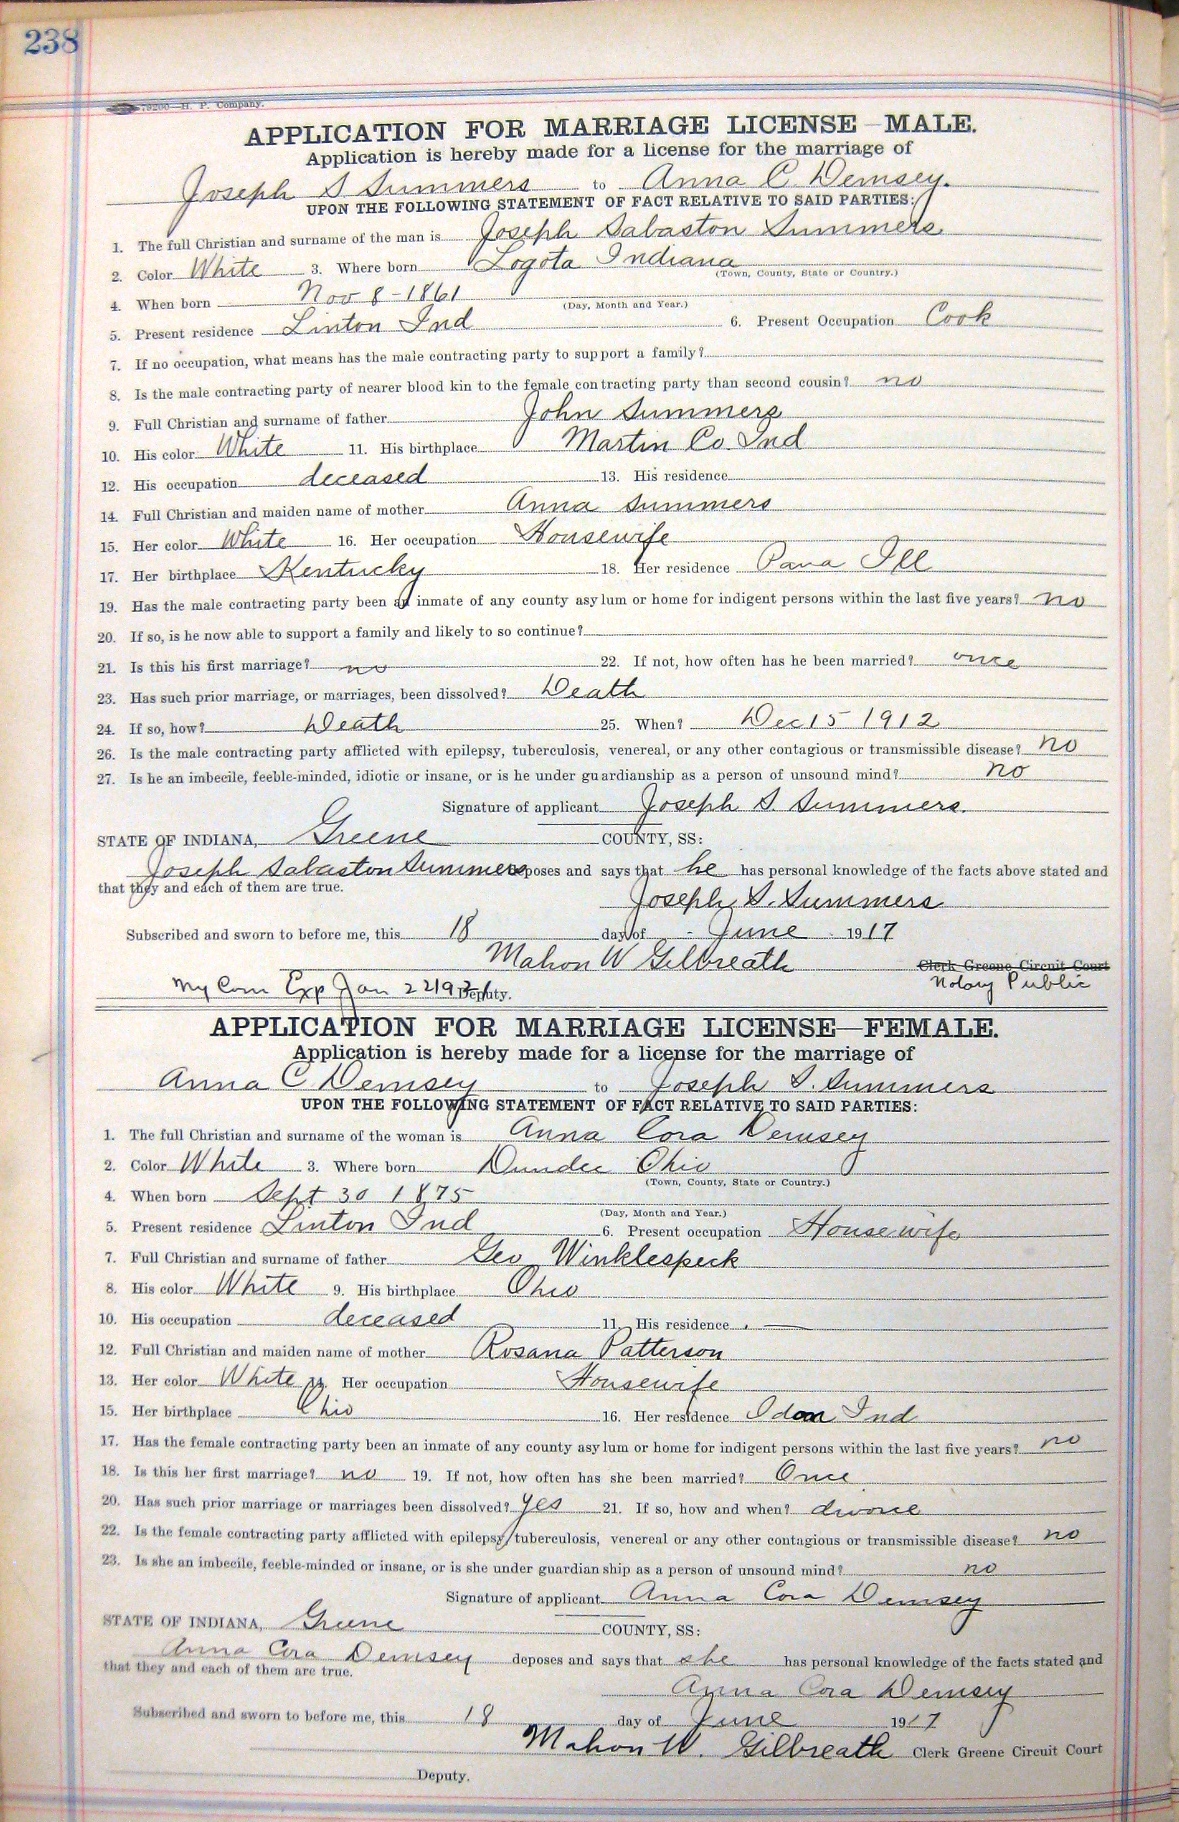 238
79200—H. P. Company.
APPLICATION FOR MARRIAGE LICENSE—MALE.
Application is hereby made for a license for the marriage of
Joseph S Summers to Anna C Demsey.
UPON THE FOLLOWING STATEMENT OF FACT RELATIVE TO SAID PARTIES:
1. The full Christian and surname of the man is Joseph Sabaston Summers
2. Color White 3. Where born Logota Indiana
(Town, County, State or Country.)
4. When born Nov 8-1861
(Day, Month and Year.)
5. Present residence Linton Ind 6. Present Occupation Cook
7. If no occupation, what means has the male contracting party to support a family?
8. Is the male contracting party of nearer blood kin to the female contracting party than second cousin? no
9. Full Christian and surname of father John Summers
10. His color White 11. His birthplace Martin Co. Ind
12. His occupation deceased 13. His residence
14. Full Christian and maiden name of mother Anna Summers
15. Her color White 16. Her occupation Housewife
17. Her birthplace Kentucky 18. Her residence Pana Ill
19. Has the male contracting party been an inmate of any county asylum or home for indigent persons within the last five years? no
20. If so, is he now able to support a family and likely to so continue?
21. Is this his first marriage? no 22. If not, how often has he been married? once
23. Has such prior marriage, or marriages, been dissolved? Death
24. If so, how? Death 25. When? Dec 15 1912
26. Is the male contracting party afflicted with epilepsy, tuberculosis, venereal, or any other contagious or transmissible disease? no
27. Is he an imbecile, feeble-minded, idiotic or insane, or is he under guardianship as a person of unsound mind? no
Signature of applicant Joseph S. Summers.
STATE OF INDIANA, Greene COUNTY, SS:
Joseph Sabaston Summers deposes and says that he has personal knowledge of the facts above stated and
that they and each of them are true.
Joseph S. Summers
Subscribed and sworn to before me, this 18 day of June 1917
Mahon W Gilbreath Clerk Greene Circuit Court
Notary Public
My Com Exp Jan 22 Deputy.
APPLICATION FOR MARRIAGE LICENSE—FEMALE.
Application is hereby made for a license for the marriage of
Anna C Demsey to Joseph S. Summers
UPON THE FOLLOWING STATEMENT OF FACT RELATIVE TO SAID PARTIES:
1. The full Christian and surname of the woman is Anna Cora Demsey
2. Color White 3. Where born Dundee Ohio
(Town, County, State or Country.)
4. When born Sept 30 1875
(Day, Month and Year.)
5. Present residence Linton Ind 6. Present occupation Housewife
7. Full Christian and surname of father Geo Winklespeck
8. His color White 9. His birthplace Ohio
10. His occupation deceased 11. His residence —
12. Full Christian and maiden name of mother Rosana Patterson
13. Her color White 14. Her occupation Housewife
15. Her birthplace Ohio 16. Her residence Odon Ind
17. Has the female contracting party been an inmate of any county asylum or home for indigent persons within the last five years? no
18. Is this her first marriage? no 19. If not, how often has she been married? Once
20. Has such prior marriage or marriages been dissolved? yes 21. If so, how and when? divorce
22. Is the female contracting party afflicted with epilepsy, tuberculosis, venereal or any other contagious or transmissible disease? no
23. Is she an imbecile, feeble-minded or insane, or is she under guardian ship as a person of unsound mind? no
Signature of applicant Anna Cora Demsey
STATE OF INDIANA, Greene COUNTY, SS:
Anna Cora Demsey deposes and says that she has personal knowledge of the facts stated and
that they and each of them are true.
Anna Cora Demsey
Subscribed and sworn to before me, this 18 day of June 1917
Mahon W. Gilbreath Clerk Greene Circuit Court
Deputy.